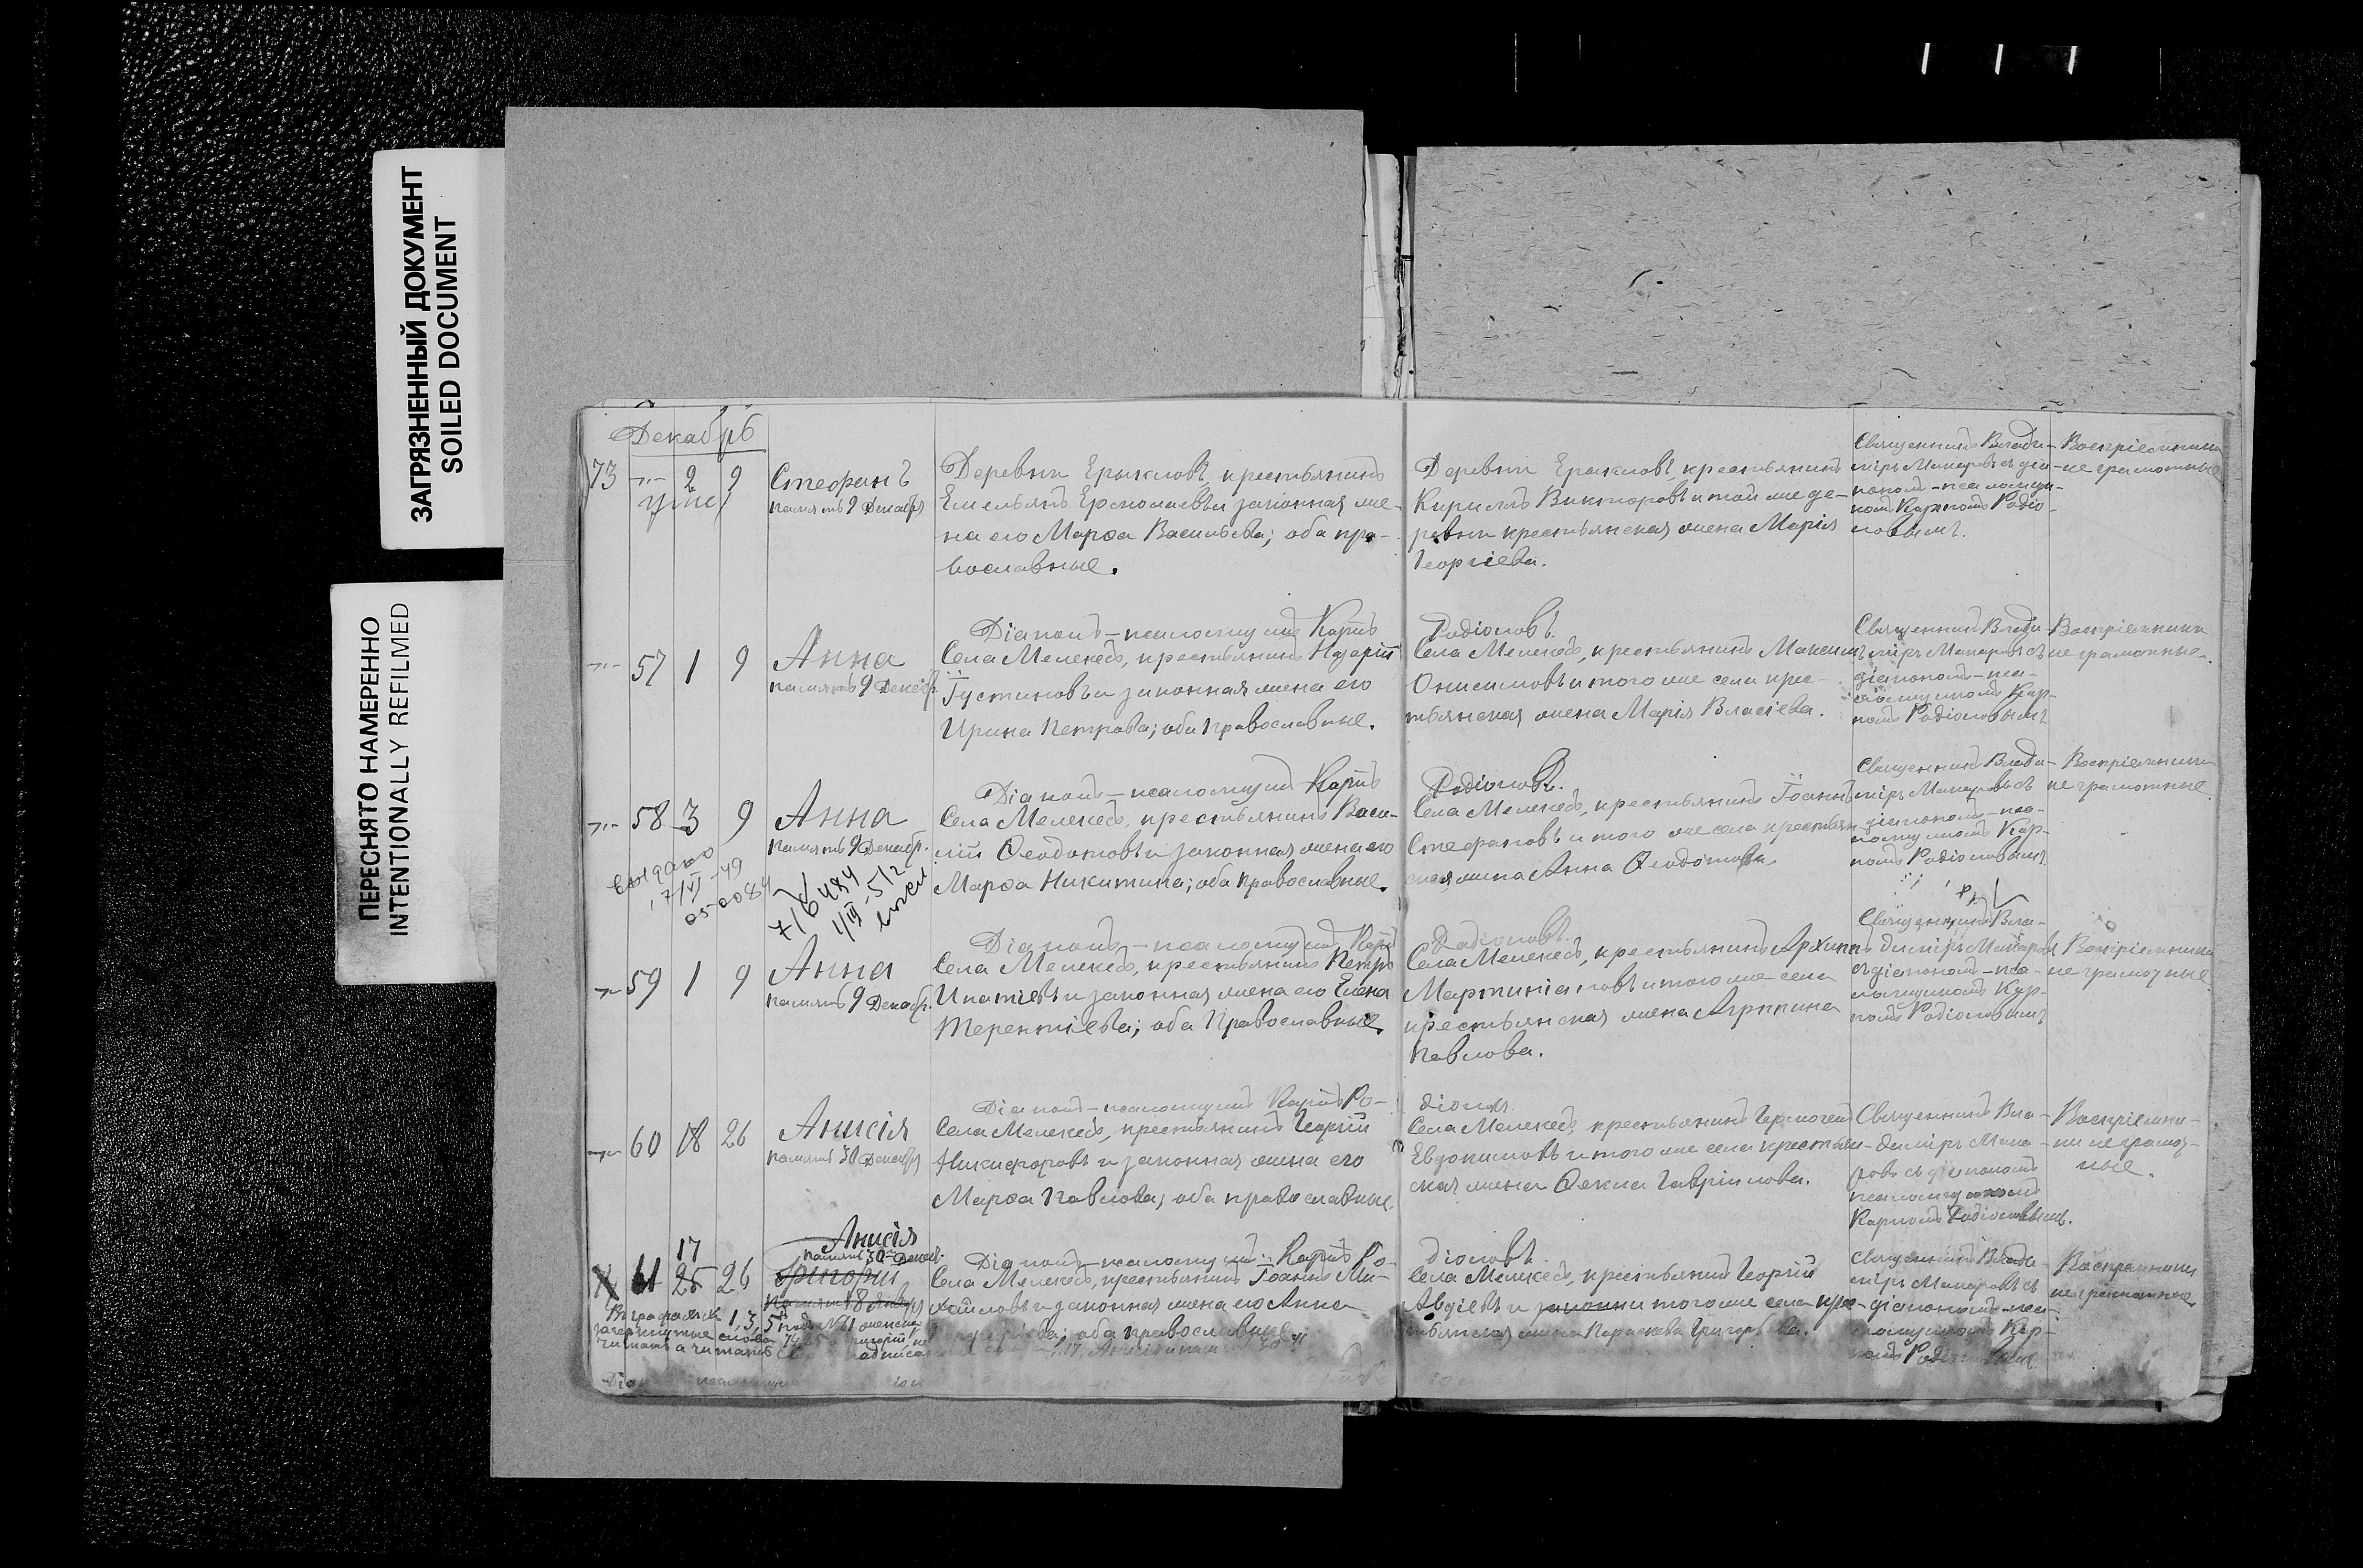 ЗАГРЯЗНЕННЫЙ ДОКУМЕНТ
SOILED DOCUMENT
ПЕРЕСНЯТО НАМЕРЕННО
INTENTIONALLY REFILMED
Декабрь
73 -"- 2 9
уме
Стефанъ
память 9 Декабря
Деревни Ерыкловъ, крестьянинъ
Емельянъ Ермолаевъ и законная же-
на его Марѳа Васильева; оба пра-
вославные.
Деревни Ерыкловъ, крестьянинъ
Кириллъ Викторовъ и той же де-
ревни крестьянская жена Марія
Георгіева.
Священникъ Влади-
міръ Макаровъ съ діа-
кономъ-псаломщи-
комъ Карпомъ Родіо-
новымъ.
Воспріемники
не грамотные
Діаконъ-псаломщикъ Карпъ Родіоновъ.
-"- 57 1 9
Анна
память 9 Декабр.
Села Мелекесъ, крестьянинъ Назарій
Іустиновъ и законная жена его
Ирина Петрова; оба православные.
Села Мелекесъ, крестьянинъ Максимъ
Онисимовъ и того же села крес-
тьянская жена Марія Власіева.
Священникъ Влади-
міръ Макаровъ съ
діакономъ-пса-
ломщикомъ Кар-
помъ Родіоновымъ
Воспріемники
не грамотные.
Діаконъ-псаломщикъ Карпъ Родіоновъ.
-"- 58 3 9
Анна
память 9 Декабр.
выдано
7/VI-49
Села Мелекесъ, крестьянинъ Васи-
лій Ѳеодотовъ и законная жена его
Марѳа Никитина; оба православные.
Села Мелекесъ, крестьянинъ Іоаннъ
Стефановъ и того же села крестьян-
ская жена Анна Ѳеодотова.
Священникъ Влади-
міръ Макаровъ съ
діакономъ-пса-
ломщикомъ Кар-
помъ Родіоновымъ
Воспріемники
не грамотные
Діаконъ-псаломщикъ Карпъ Родіоновъ.
-"- 59 1 9
Анна
память 9 Декабр.
Села Мелекесъ, крестьянинъ Петръ
Ипатіевъ и законная жена его Елена
Терентіева; оба Православные.
Села Мелекесъ, крестьянинъ Архипъ
Мартиніановъ и того же села
крестьянская жена Агрипина
Павлова.
Священникъ Вла-
диміръ Макаровъ
съ діакономъ-пса-
ломщикомъ Кар-
помъ Родіоновымъ
Воспріемники
не грамотные
Діаконъ-псаломщикъ Карпъ Родіоновъ
-"- 60 18 26
Анисія
память 30 Декабря
Села Мелекесъ, крестьянинъ Георгій
Никифоровъ и законная жена его
Марѳа Павлова; оба православные.
Села Мелекесъ, крестьянинъ Гермогенъ
Евдокимовъ и того же села крестьян-
ская жена Ѳекла Гавріилова.
Священникъ Вла-
диміръ Мака-
ровъ съ діакономъ
псаломщикомъ
Карпомъ Родіоновымъ.
Воспріемни-
ки не грамот-
ные.
Діаконъ-псаломщикъ Карпъ Родіоновъ
61 17 25 26
Анисія
память 30 Декаб.
Григорій
память 8 Января
Села Мелекесъ, крестьянинъ Іоаннъ Ми-
хаиловъ и законная жена его Анна
оба православные
Села Мелекесъ, крестьянинъ Георгій
Авдіевъ и законн и того же села крес-
тьянская жена Параскева Григорьева.
Священникъ Влади-
міръ Макаровъ съ
діакономъ-пса-
ломщикомъ Кар-
помъ
Воспріемники
не грамотные
Въ графахъ 1, 3, 5
зачеркнутые слова
читать а читать